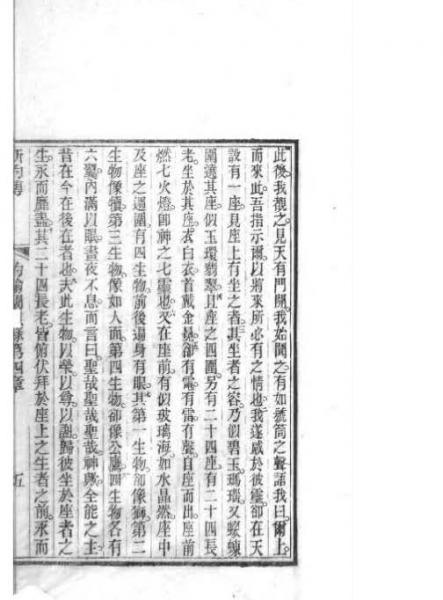 此後我觀之見天有門開我始聞之有如號筒之聲語我曰爾上
而來此吾指示爾以將來所必有之情也我遂感於彼靈卻在天
設有一座見座上有坐之者其坐者之容乃似碧玉瑪瑙又螮蝀
圍遶其座似玉環翡翠且座之四圍另有二十四座有二十四長
老坐於其座衣白衣首戴金冕卻有電有雷有聲自座而出座前
燃七火燈即神之七靈也又在座前有似玻璃海如水晶然座中
及座之週圍有四生物前後遍身有眼其第一生物卻像獅第二
生物像犢第三生物像如人面第四生物卻像公鷹四生物各有
六翼內滿以眼晝夜不息而言曰聖哉聖哉聖哉神縣全能之主
昔在今在後在者也夫此生物以榮以尊以謝歸彼坐於座者之
生永而歷盡其二十四長老皆俯伏拜於座上之生者之前永而
第四章
五